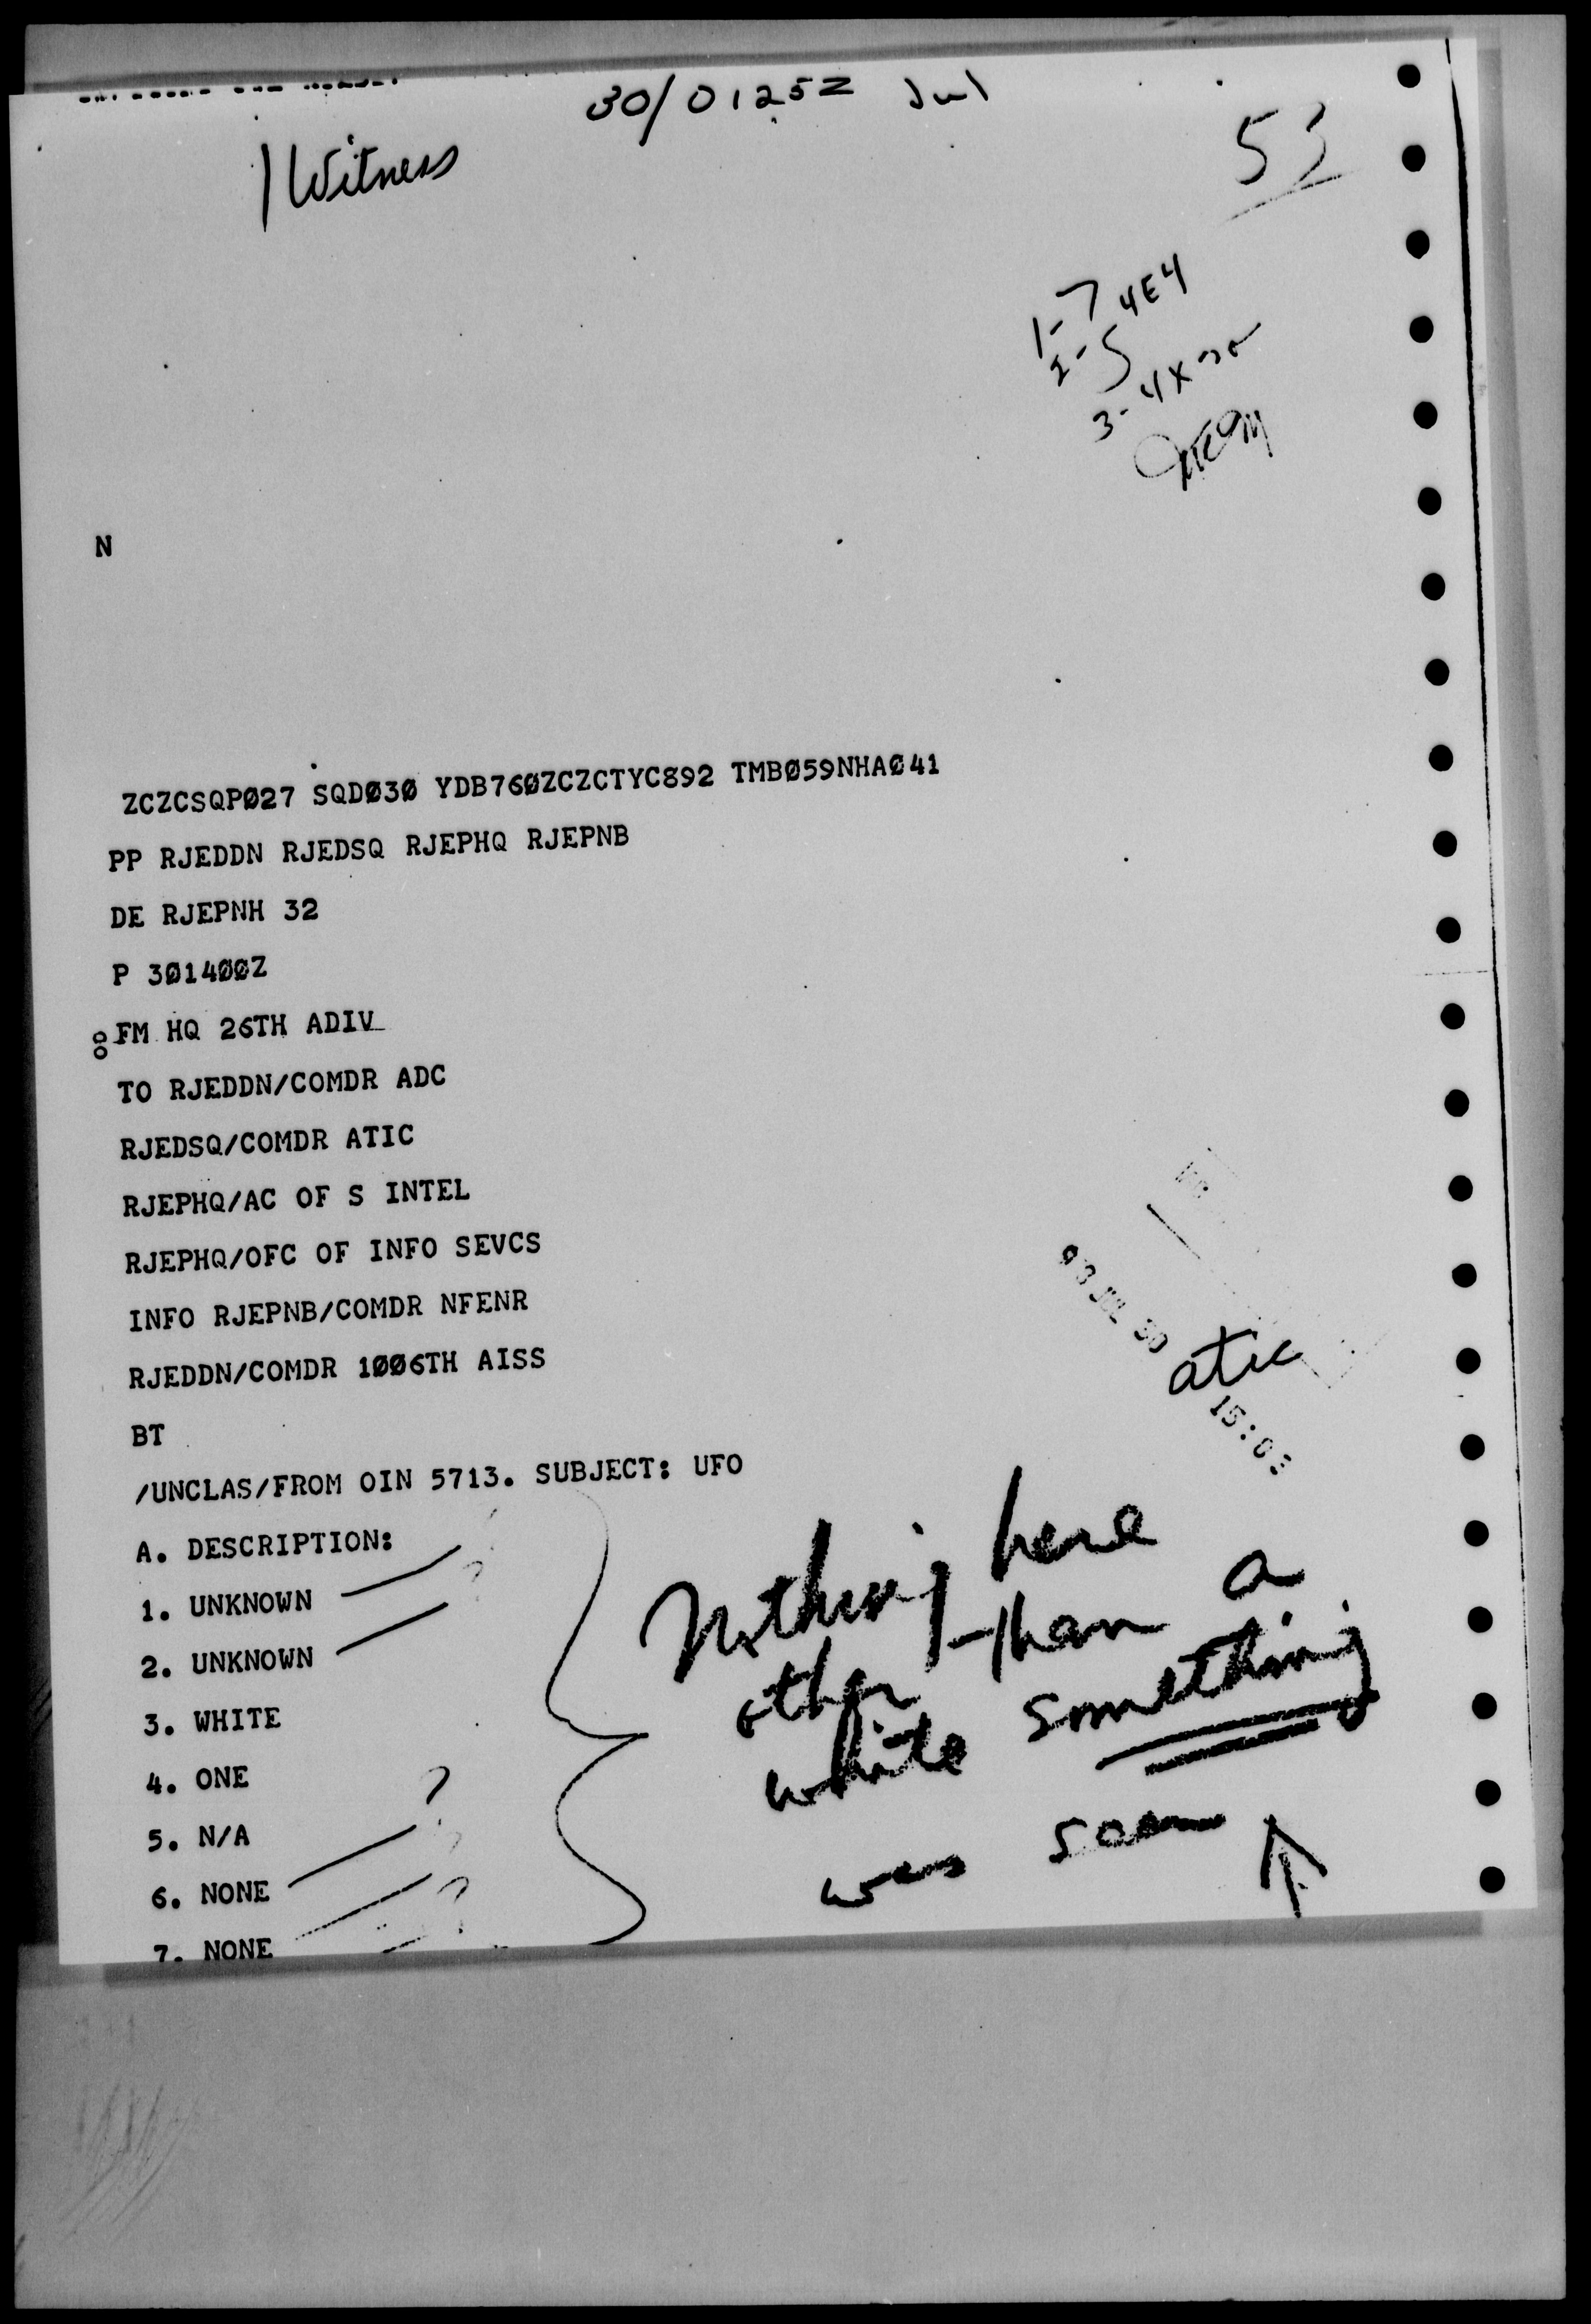 30/0125Z Jul
1 Witness
53
1-7 4E4
2-5
3-4X
N
ZCZCSQPØ27 SQDØ3Ø YDB76ØZCZCTYC892 TMBØ59NHAØ41
PP RJEDDN RJEDSQ RJEPHQ RJEPNB
DE RJEPNH 32
P 3Ø14ØØZ
FM HQ 26TH ADIV
TO RJEDDN/COMDR ADC
RJEDSQ/COMDR ATIC
RJEPHQ/AC OF S INTEL
RJEPHQ/OFC OF INFO SEVCS
INFO RJEPNB/COMDR NFENR
RJEDDN/COMDR 1ØØ6TH AISS
BT
JUL 30
atic
/UNCLAS/FROM OIN 5713. SUBJECT: UFO
A. DESCRIPTION:
1. UNKNOWN ?
2. UNKNOWN ?
3. WHITE
4. ONE
5. N/A ?
6. NONE ?
7. NONE ?
Nothing here
other than a
white something
was seen ↑